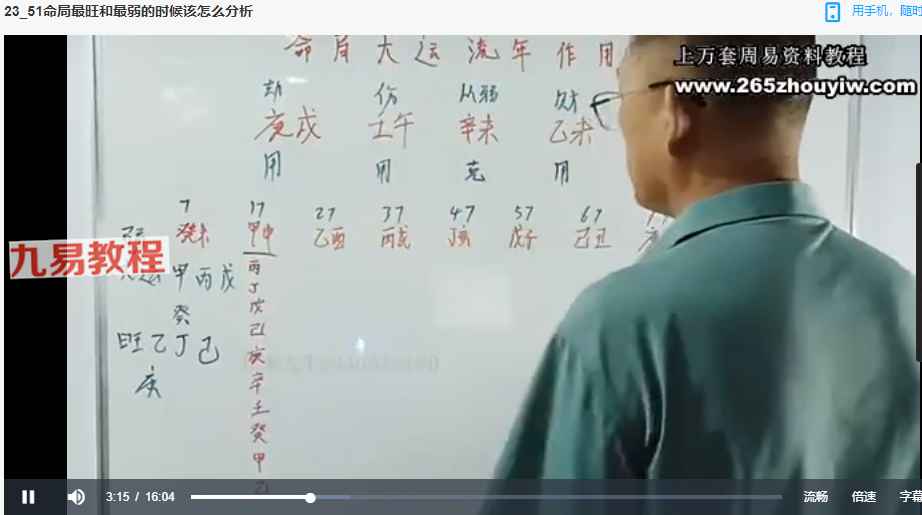 23_51命局最旺和最弱的时候该怎么分析
用手机，随时
上万套周易资料教程
www.265zhouyiw.com
命局大运流年作用
劫 伤 从弱 财
庚戌 壬午 辛未 乙未
用 用 克 用
7 17 27 37 47 57 67
癸未 甲申 乙酉 丙戌 丁亥 戊子 己丑
九易教程
甲丙戊
癸
旺乙丁己
庚
丙
丁
戊
己
庚
辛
壬
癸
甲
乙
3:15 / 16:04
流畅 倍速 字幕